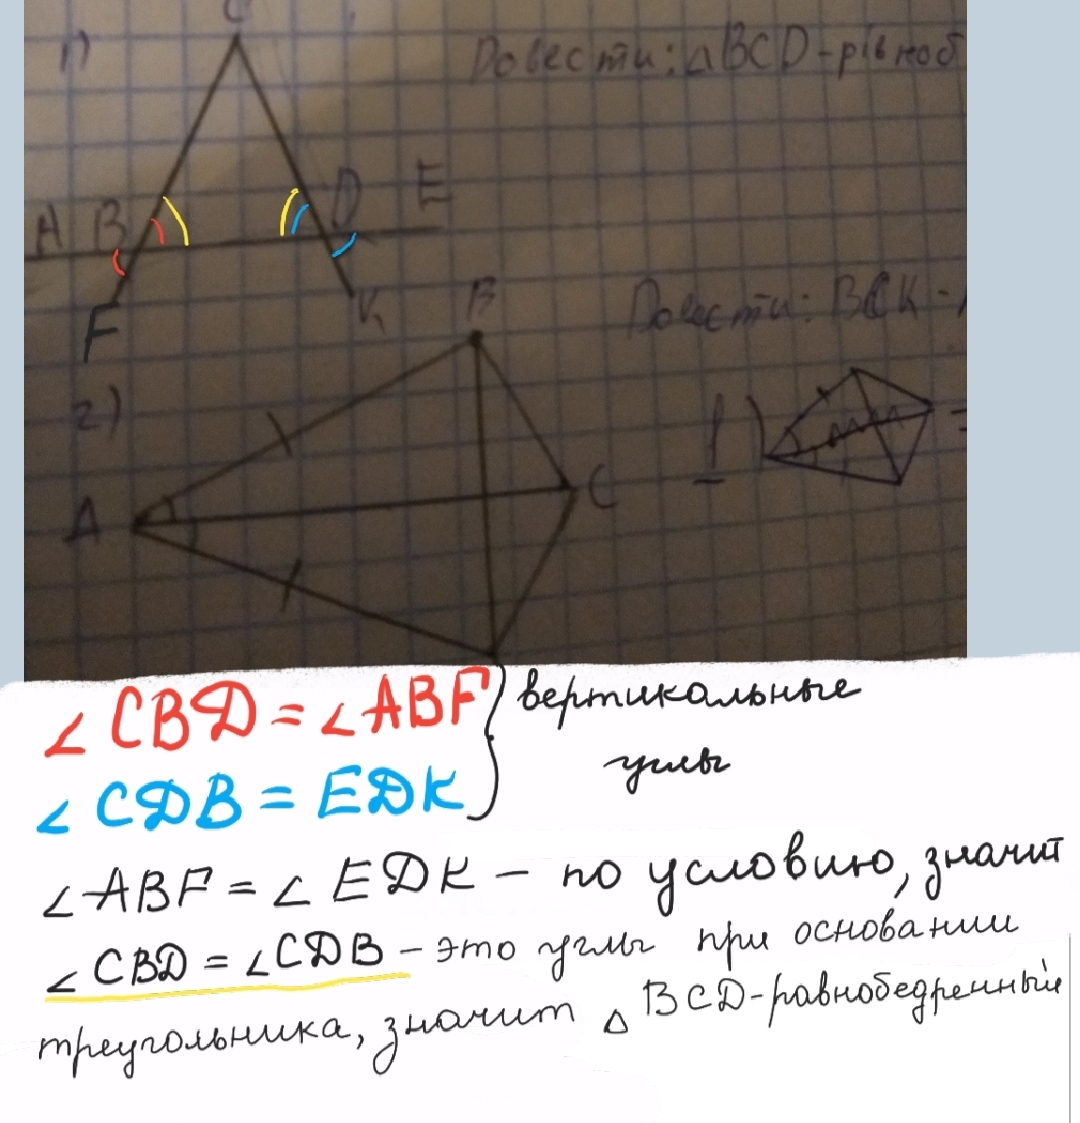 C
1)
Довести: ΔBCD-рівноб
A B D E
F K
B
Довести: BCK -
2)
1)
A C
∠ CBD = ∠ABF } вертикальные
∠ CDB = EDK } углы
∠ABF = ∠ EDK - по условию, значит
∠ CBD = ∠CDB - это углы при основании
треугольника, значит Δ BCD-равнобедренный